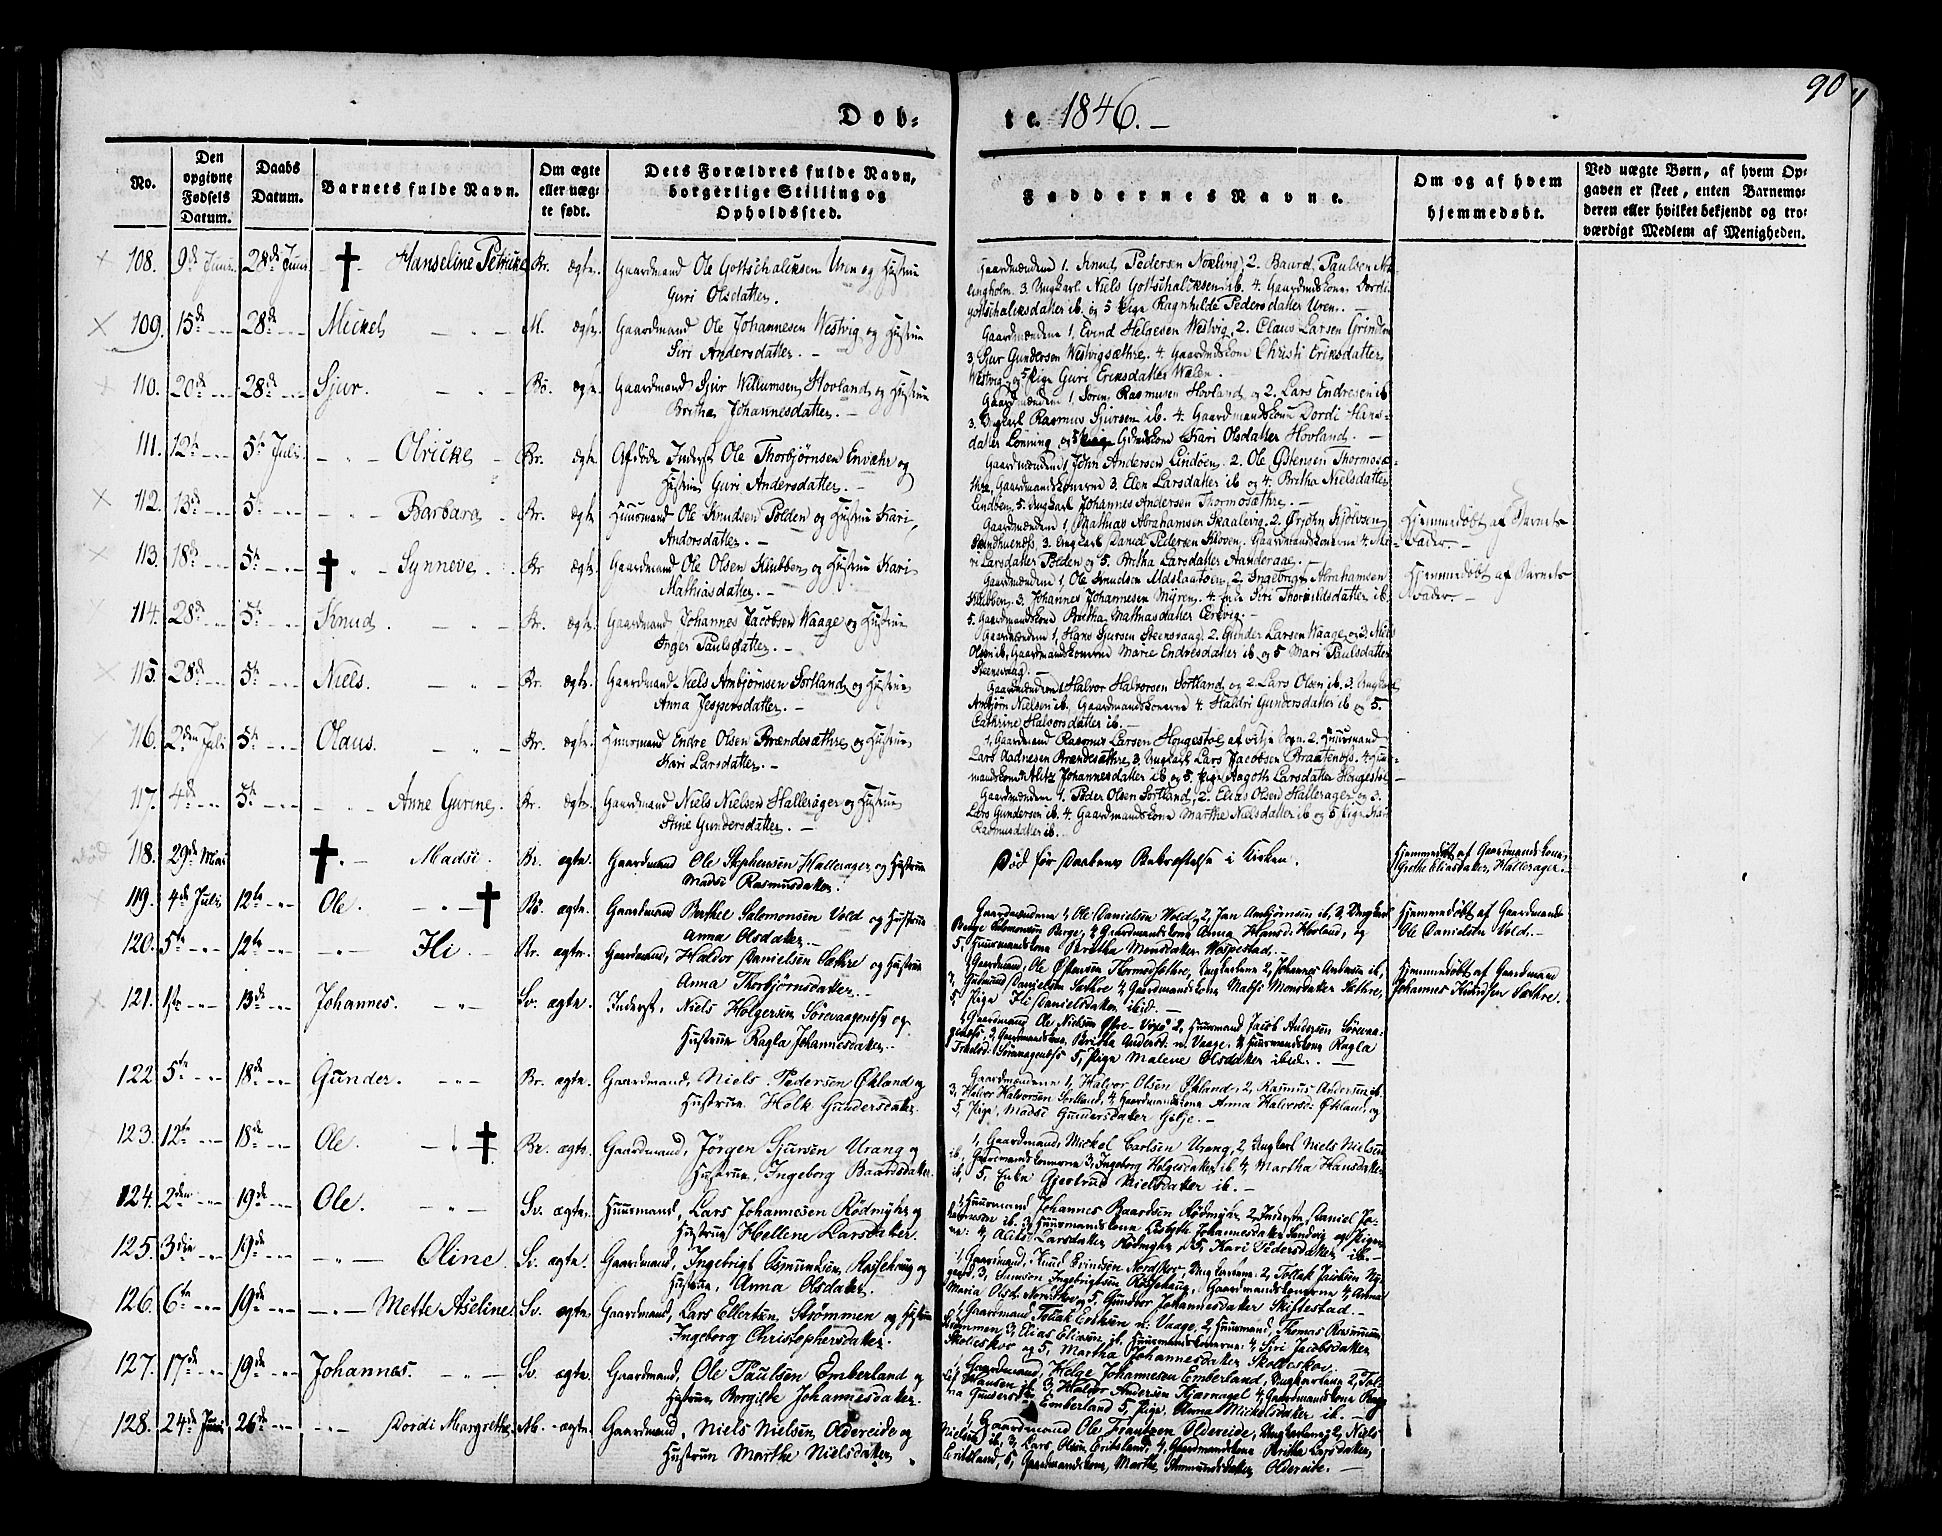 90
Dob-
te. 1846.
No.
Den
opgivne
Fødsels
Datum.
Daabs
Datum.
Barnets fulde Navn.
Om ægte
eller uæg-
te født.
Dets Forældres fulde Navn,
borgerlige Stilling og
Opholdssted.
Faddernes Navne.
Om og af hvem
hjemmedøbt.
Ved uægte Børn, af hvem Op-
gaven er skeet, enten Barnemo-
deren eller hvilket bekjendt og tro-
værdigt Medlem af Menigheden.
108. 9de Juni 28de Juni Hanseline Petricke Br. ægte. Gaardmand Ole Gottschalksen Uren og Hustrue
Guri Olsdatter.
Gaardmændene 1. Knud Pedersen Nökling, 2. Baard Paulsen
3. Ungkarl Niels Gottschalksen ib. 4. Gaardmandskone Dordi
Gottschalksdatter ib. og 5 Pige Ragnhilde Pedersdatter Uren.
109. 15de 28de Mickel M. ægte. Gaardmand Ole Johannesen Westvig og Hustrue
Siri Andersdatter.
Gaardmændene 1, Evind Helgesen Westvig, 2. Claus Larsen
3, Siur Gundersen Westvigsæthre. 4. Gaardmdskone Christi Eriksdatter
Westvig og 5 Pige Guri Eriksdatter Wålen.
110. 20de 28de Sjur. ægte. Gaardmand Sjur Willumsen Hovland og Hustrue
Brithe Johannesdatter.
Gaardmændene 1, Sören Rasmusen Hovland og 2. Lars Endresen ib
3. Ungkarl Rasmus Sjursen ib. 4. Gaardmandskone Dordi Hans-
datter Lönning og 5 Kari Olsdatter Hovland.
111. 12te 5te Juli Olricke Br. ægte Afdöde Inderst Ole Thorbjørnsen og
Hustrue Guri Andersdatter.
Gaardmændene 1, John Andersen Lindöen. 2. Ole Østensen Thormosæ-
thre, Gaardmandskonerne 3. Elen Larsdatter ib og 4. Britha Nielsdatter
Lindöen, 5. Ungkarl Johannes Andersen Thormosæthre.
112. 13de 5te Barbara Br. ægte Huusmand Ole Knudsen Polden og Hustrue Kari
Andersdatter.
Gaardmændene 1, Mathias Abrahamsen Skaalevig, 2.
3. Ungkarl Daniel Pedersen Gaardmandskonerne 4.
Larsdatter Polden og 5. Britha Larsdatter Aanderaae.
Hjemmedøbt af Barnets
Fader.
113. 18de 5te Synneve Br ægte Gaardmand Ole Olsen Klubben og Hustrue Kari
Mathiasdatter.
Gaardmændene 1, Ole Knudsen 2. Ingebrigt Abrahamsen
Klubben, 3. Johannes Johannesen Myren. 4. Siri Thorkildsdatter ib.
5. Gaardmandskone Britha Mathiasdatter
Hjemmedøbt af Barnets
Fader.
114. 28de 5te Knud Br. ægte. Gaardmand Johannes Jacobsen Waage og Hustrue
Inger Paulsdatter.
Gaardmændene 1, Hans Sjursen Steensvaag, 2. Gunder Larsen Waage og 3. Niels
Olsen ib, Gaardmandskonerne Marie Endresdatter ib og 5 Mari Paulsdatter
Steensvaag.
115. 28de 5te Niels. Br. ægte. Gaardmand Niels Ambjörnsen Sortland og Hustrue
Anna Jespersdatter.
Gaardmændene 1 Halvor Halvorsen Sortland og 2. Lars Olsen ib. 3. Ungkarl
Ambjörn Nielsen ib, Gaardmandskonerne 4. Haldri Gundersdatter ib og 5.
Cathrine Halvorsdatter ib.
116. 2den Juli 5te Olaus. Br. ægte. Huusmand Endre Olsen Brændesæthre og Hustrue
Kari Larsdatter.
1, Gaardmand Rasmus Larsen Hougestöl 2. Huusmand
Lars Aadnesen Brændesæthre, 3. Ungkarl Lars Jacobsen 4.
Johannesdatter ib og 5. Pige Aagoth Larsdatter Hougestöl
117. 4de 5te Anne Gurine Br. ægte. Gaardmand Niels Nielsen Halleråger og Hustrue
Stine Gundersdatter.
Gaardmændene 1. Peder Olsen Sortland, 2. Elias Olsen Hallerager og 3.
Lars Gundersen ib. 4. Gaardmandskone Marthe Nielsdatter ib og 5 Pige
Rasmusdatter ib.
død 118. 29de Mai Madsi Br. ægte. Gaardmand Ole Stephensen Hallerager og Hustrue
Madsi Rasmusdatter.
Død før Daabens Bekræftelse i Kirken.
Hjemmedöbt af Gaardmandskone
Grethe Eliasdatter Hallerager.
119. 4de Juli 12te Ole. ægte. Gaardmand Berthel Salomonsen Vold og Hustrue
Anna Olsdatter.
Gaardmændene 1, Ole Danielsen Wold, 2, Jan Ambjørnsen ib, 3, Ungkarl
Börge Salomonsen Berge, 4 Gaardmandskone Anna Hansd: Hovland, og
5, Huusmandskone Britha Monsdatter
Hjemmedöbt af Gaardmand
Ole Danielsen Vold.
120. 5te 12te Ili. Br. ægte. Gaardmand, Haldor Danielsen Sæthre og Hustrue
Anna Thorbjörnsdatter.
Gaardmand, Ole Østensen Thormosæthre, Ungkarlene 2, Johannes Andersen ib,
3, Gudmund Danielsen Sæthre 4, Gaardmandskone Madsi Monsdatter Sæthre,
5, Pige Ili Danielsdatter ibid.
Hjemmedöbt af Gaardmand
Johannes Knudsen Sæthre.
121. 1ste 13de Johannes. Sv. ægte. Inderst, Niels Holgersen og
Hustrue Ragla Johannesdatter.
1, Gaardmand Ole Nielsen 2, Huusmand Jacob Andersen
3, Gaardmandskone Britha Andersd: n: Vaage, 4 Huusmandskone Ragla
5, Pige Malene Olsdatter ibid.
122 5te 18de Gunder. Br. ægte. Gaardmand, Niels Pedersen Økland og
Hustrue Holk Gundersdatter.
Gaardmændene 1, Halvor Olsen Økland, 2, Rasmus Andersen ib.
3, Halvor Halvorsen Sortland, 4, Gaardmandskone Anna Halvorsd: Økland, og
5, Pige, Madsi Gundersdatter Gilje.
123. 12te 18de Ole Br. ægte. Gaardmand, Jørgen Sjursen Urang og
Hustrue, Ingeborg Baardsdatter
1, Gaardmand, Mickel Carlsen Urang, 2, Ungkarl Niels Nielsen
ib, Gaardmandskonerne 3, Ingeborg Helgesdatter ib 4, Martha Hansdatter
ib, 5, Enke Gjertrud Nielsdatter ib.
124. 2den 19de Ole. Sv. ægte. Huusmand, Lars Johannesen Rödmyhr og
Hustrue Hellene Larsdatter.
1, Huusmand Johannes Baardsen Rödmyhr, 2, Inderst, Daniel Jo-
hannesen ib. 3, Huusmandskone Lisbeth Johannesdatter Sandvig og Piger-
ne: 4, Larsdatter Rödmyhr og 5, Kari Pedersdatter ib.
125. 3die 19de Oline Sv. ægte. Gaardmand, Ingebrigt Osmundsen, og
Hustrue, Anna Olsdatter.
1, Gaardmand, Knud Evindsen Nordskov, Ungkarlene: 2, Tollak Jacobsen
3, Samson Ingebrigtsen Gaardmandskonerne 4, Anna
Maria Olsd. 5, Gundvor Johannesdatter Skiftestad.
126. 6te 19de Mette Aseline. Sv. ægte. Gaardmand, Lars Ellertsen, Strømmen og Hustrue
Ingeborg Christophersdatter.
1, Gaardmand Tollak Eriksen n: Vaage, 2, Huusmand, Thomas Rasmusen
Strømmen, 3, Elias Eliasen ib Huusmandskonerne: 4, Siri Jacobsdatter
og 5, Martha Johannesdatter
127. 17de 19de Johannes. Sv. ægte Gaardmand, Ole Paulsen Emberland og
Hustrue Borgilte Johannesdatter.
1, Gaardmand, Helge Johannesen Emberland, Ungkarlene 2,
Hansen ib, 3, Haldor Andersen 4, Gaardmandskone
Emberland 5, Pige, Anna Mickelsdatter ib.
128. 24de Juni 26de Dordi Margrethe M. ægte. Gaardmand, Niels Nielsen Oldereide og
Hustrue Marthe Nielsdatter
1, Gaardmand Ole Frantzen Oldereide, Ungkarlene: 2, Niels
Nielsen ib, 3, Lars Olsen Eriksland, 4, Gaardmandskone Brithe Larsdatter,
Eriksland, 5, Gaardmandskone, Marthe Oldereide.